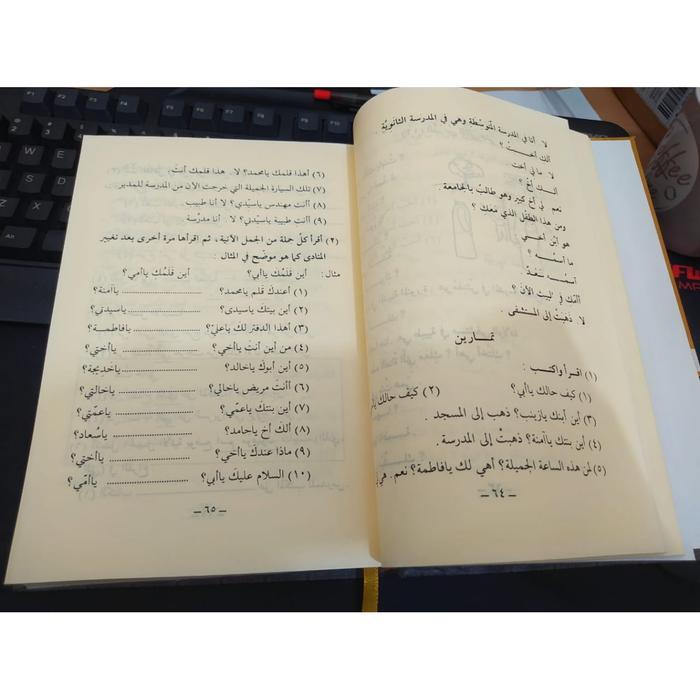 لا أنا في المدرسة المتوسطة وهي في المدرسة الثانوية .
ألك أخت ؟
لا ما لي أخت
ألك أخ ؟
نعم لي أخ كبير وهو طالب بالجامعة .
ومن هذا الطفل الذي معك ؟
هو ابن أخي
ما اسمه ؟
اسمه سعد
أأمك في البيت الآن ؟
لا ذهبت إلى المستشفى .
تمارين
(١) اقرأ واكتب :
(١) كيف حالك ياأبي؟ (٢) كيف حالك
(٣) أين أبنك يازينب؟ ذهب إلى المسجد .
(٤) أين بنتك ياآمنة؟ ذهبتْ إلى المدرسة .
(٥) لمن هذه الساعة الجميلة؟ أهي لك يافاطمة؟ نعم . هي
– ٦٤ –
(٦) أهذا قلمك يامحمد؟ لا . هذا قلمك أنتَ.
(٧) تلك السيارة الجميلة التي خرجت الآن من المدرسة للمدير.
(٨) أأنت مهندس ياسيّدي؟ لا أنا طبيب
(٩) أأنت طبيبة ياسيّدتي؟ لا . أنا مدرّسة
(٢) أقرأ كلّ جملة من الجمل الآتية ، ثم اقرأها مرة أخرى بعد تغيير
المنادى كما هو موضّح في المثال :
مثال : أين قلمُكَ ياأبي؟ أين قلمُكِ ياأمي؟
(١) أعندك قلم يامحمد؟ .......... ياآمنة؟
(٢) أين بيتك ياسيدى؟ .......... ياسيدتي؟
(٣) أهذا الدفتر لك ياعليّ؟ .......... يافاطمـة؟
(٤) من أين أنتَ ياأخي؟ .......... ياأختي؟
(٥) أين أبوكَ ياخالد؟ .......... ياخديجة؟
(٦) أأنت مريض ياخالي؟ .......... ياخالتي؟
(٧) أين بنتك ياعمّي؟ .......... ياعمّتي؟
(٨) ألك أخ ياحامد؟ .......... ياسُعاد؟
(٩) ماذا عندكَ ياأخي؟ .......... ياأختي؟
(١٠) السلام عليكَ ياأبي؟ .......... ياأمّي؟
– ٦٥ –